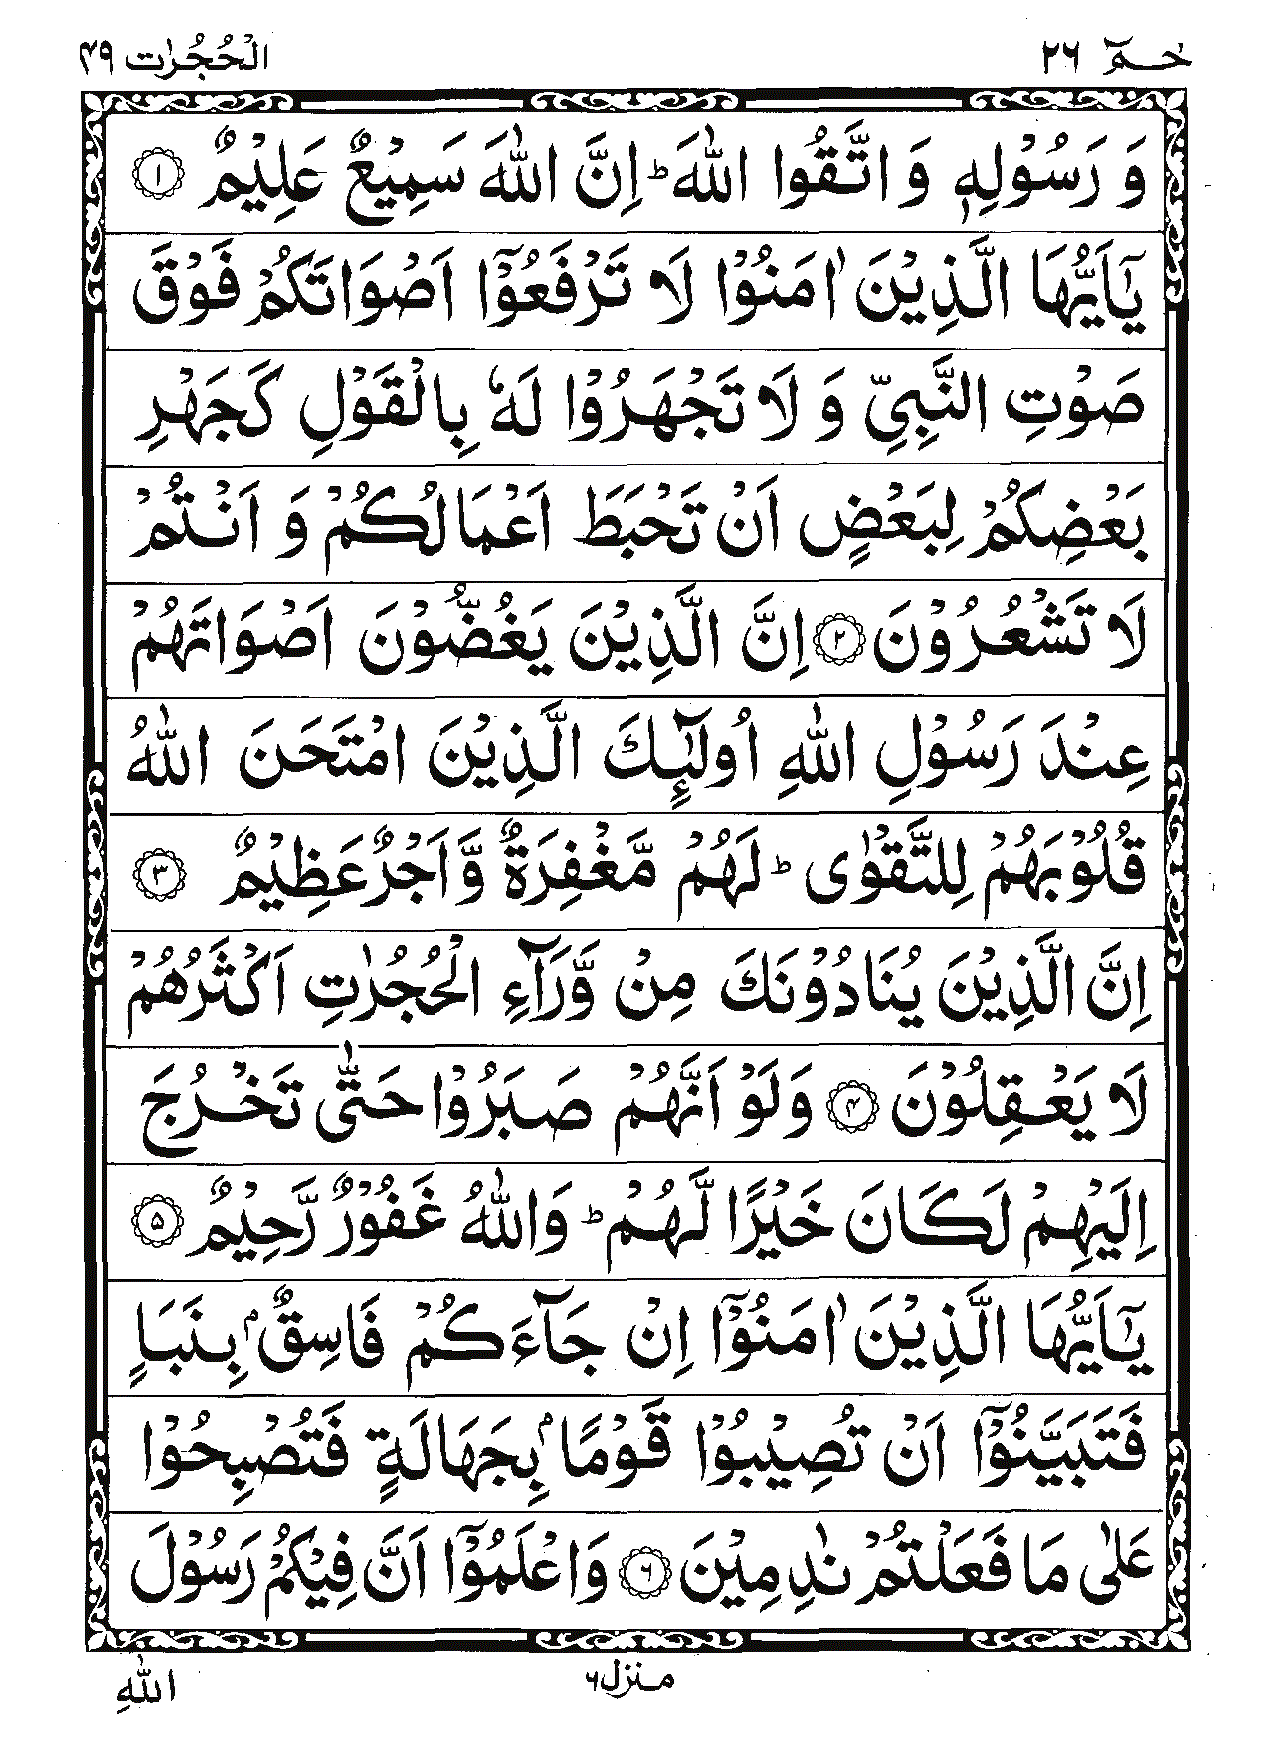 حٰمٓ ٢٦
الْحُجُرٰت ٤٩
وَ رَسُوْلِهٖ وَ اتَّقُوا اللّٰهَ ؕ اِنَّ اللّٰهَ سَمِيْعٌ عَلِيْمٌ ١
يٰۤاَيُّهَا الَّذِيْنَ اٰمَنُوْا لَا تَرْفَعُوْۤا اَصْوَاتَكُمْ فَوْقَ
صَوْتِ النَّبِيِّ وَ لَا تَجْهَرُوْا لَهٗ بِالْقَوْلِ كَجَهْرِ
بَعْضِكُمْ لِبَعْضٍ اَنْ تَحْبَطَ اَعْمَالُكُمْ وَ اَنْتُمْ
لَا تَشْعُرُوْنَ ٢ اِنَّ الَّذِيْنَ يَغُضُّوْنَ اَصْوَاتَهُمْ
عِنْدَ رَسُوْلِ اللّٰهِ اُولٰٓئِكَ الَّذِيْنَ امْتَحَنَ اللّٰهُ
قُلُوْبَهُمْ لِلتَّقْوٰى ؕ لَهُمْ مَّغْفِرَةٌ وَّاَجْرٌ عَظِيْمٌ ٣
اِنَّ الَّذِيْنَ يُنَادُوْنَكَ مِنْ وَّرَآءِ الْحُجُرٰتِ اَكْثَرُهُمْ
لَا يَعْقِلُوْنَ ٤ وَلَوْ اَنَّهُمْ صَبَرُوْا حَتّٰى تَخْرُجَ
اِلَيْهِمْ لَكَانَ خَيْرًا لَّهُمْ ؕ وَاللّٰهُ غَفُوْرٌ رَّحِيْمٌ ٥
يٰۤاَيُّهَا الَّذِيْنَ اٰمَنُوْۤا اِنْ جَآءَكُمْ فَاسِقٌۢ بِنَبَاٍ
فَتَبَيَّنُوْۤا اَنْ تُصِيْبُوْا قَوْمًاۢ بِجَهَالَةٍ فَتُصْبِحُوْا
عَلٰى مَا فَعَلْتُمْ نٰدِمِيْنَ ٦ وَاعْلَمُوْۤا اَنَّ فِيْكُمْ رَسُوْلَ
منزل ٦
اللّٰهِ